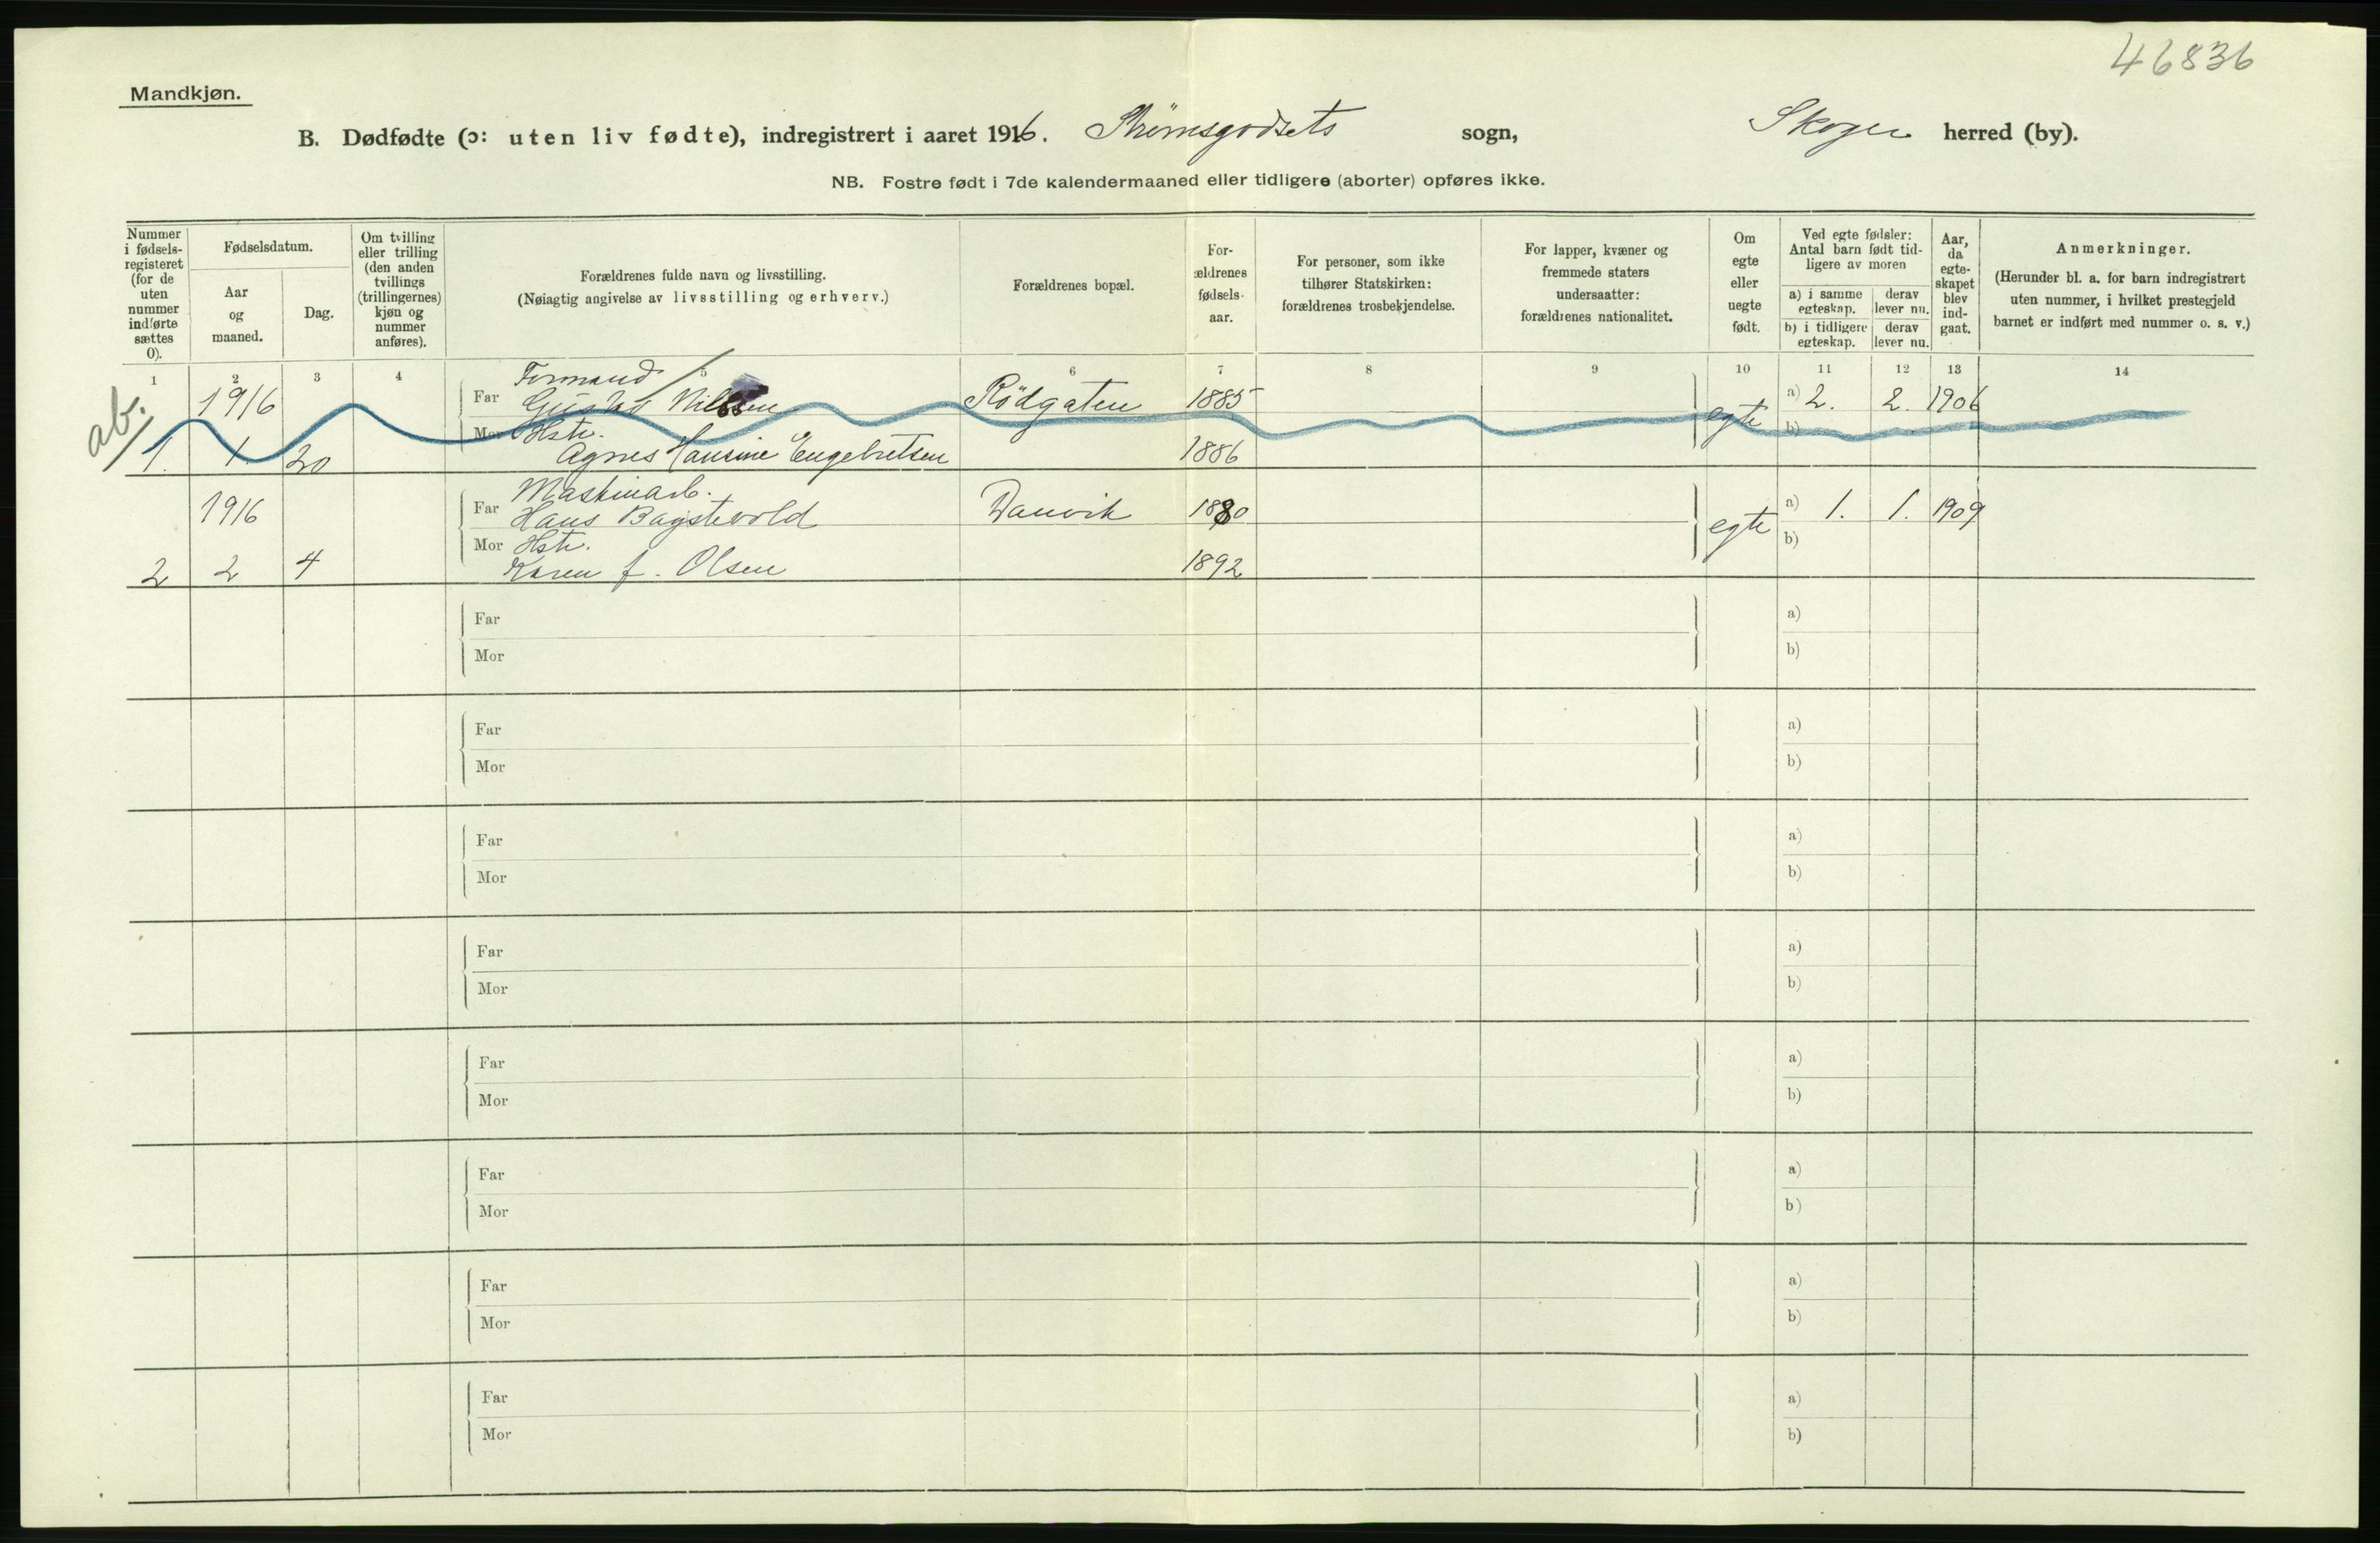 46836
Mandkjøn.
B. Dødfødte (ɔ: uten liv fødte), indregistrert i aaret 1916. Strømsgodsets sogn, Skoger herred (by).
NB. Fostre født i 7de kalendermaaned eller tidligere (aborter) opføres ikke.
Nummer i fødselsregisteret (for de uten nummer indførte sættes 0).
Fødselsdatum.
Aar og maaned.
Dag.
Om tvilling eller trilling (den anden tvillings (trillingernes) kjøn og nummer anføres).
Forældrenes fulde navn og livsstilling.
(Nøiagtig angivelse av livsstilling og erhverv.)
Forældrenes bopæl.
Forældrenes fødselsaar.
For personer, som ikke tilhører Statskirken: forældrenes trosbekjendelse.
For lapper, kvæner og fremmede staters undersaatter: forældrenes nationalitet.
Om egte eller uegte født.
Ved egte fødsler: Antal barn født tidligere av moren
a) i samme egteskap. derav lever nu.
b) i tidligere egteskap. derav lever nu.
Aar, da egteskapet blev indgaat.
Anmerkninger.
(Herunder bl. a. for barn indregistrert uten nummer, i hvilket prestegjeld barnet er indført med nummer o. s. v.)
1 2 3 4 5 6 7 8 9 10 11 12 13 14
ab.
Formand
1916 Far Gustav Nilsen Rödgaten 1885 egte a) 2. 2. 1906
Mor Hstr. b)
1. 1. 20 Agnes Hansine Engebretsen 1886
Maskinarb.
1916 Far Hans Bagstevold Danvik 1880 egte a) 1. 1. 1909
Mor Hstr. b)
2 2 4 Karen f. Olsen 1892
Far a)
Mor b)
Far a)
Mor b)
Far a)
Mor b)
Far a)
Mor b)
Far a)
Mor b)
Far a)
Mor b)
Far a)
Mor b)
Far a)
Mor b)